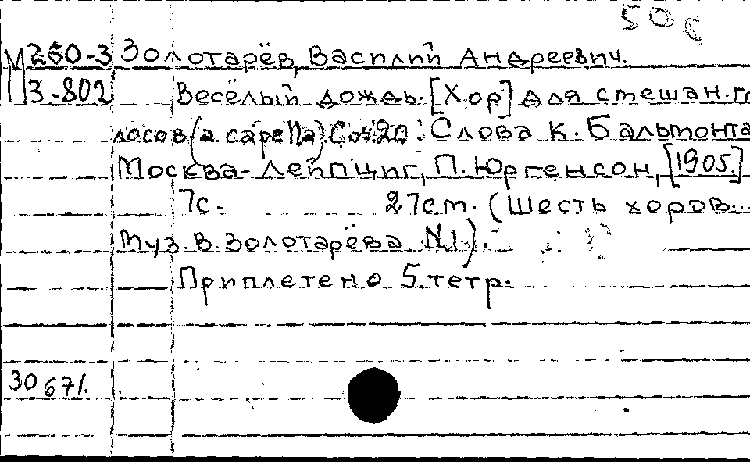 50 с
М 260-3 Золотарёв, Василий Андреевич.
З-802 Весёлый дождь. [Хор] для смешан. го
лосов (a capella) Соч 20. Слова К. Бальмонта
Москва - Лейпциг, П. Юргенсон, [1905.]
7с. 27 cm. (Шесть хоров...
муз. В. Золотарёва N 1).
Приплетено 5. тетр.
30 671.